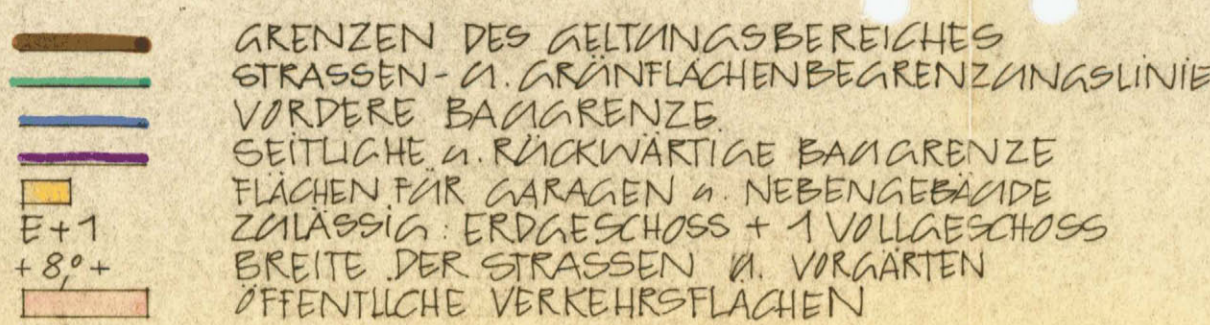 GRENZEN DES GELTUNGSBEREICHES
STRASSEN- U. GRÜNFLÄCHENBEGRENZUNGSLINIE
VORDERE BAUGRENZE
SEITLICHE U. RÜCKWÄRTIGE BAUGRENZE
FLÄCHEN FÜR GARAGEN U. NEBENGEBÄUDE
E+1 ZULÄSSIG: ERDGESCHOSS + 1 VOLLGESCHOSS
+ 8,0 + BREITE DER STRASSEN U. VORGÄRTEN
ÖFFENTLICHE VERKEHRSFLÄCHEN